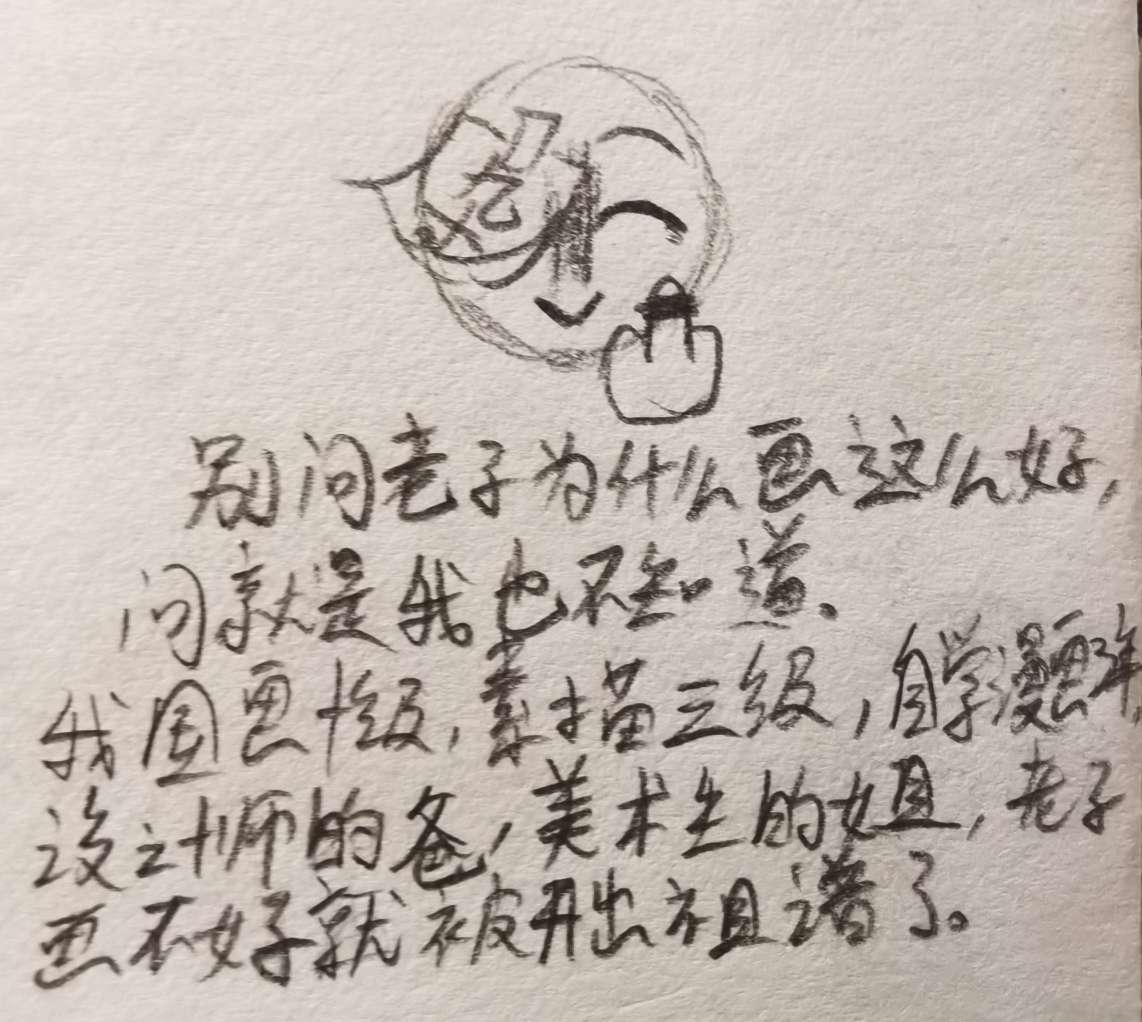 别问老子为什么画这么好,
问就是我也不知道、
我国画十级,素描三级,自学漫画三年,
设计师的爸,美术生的姐,老子
画不好就被开出祖谱了。